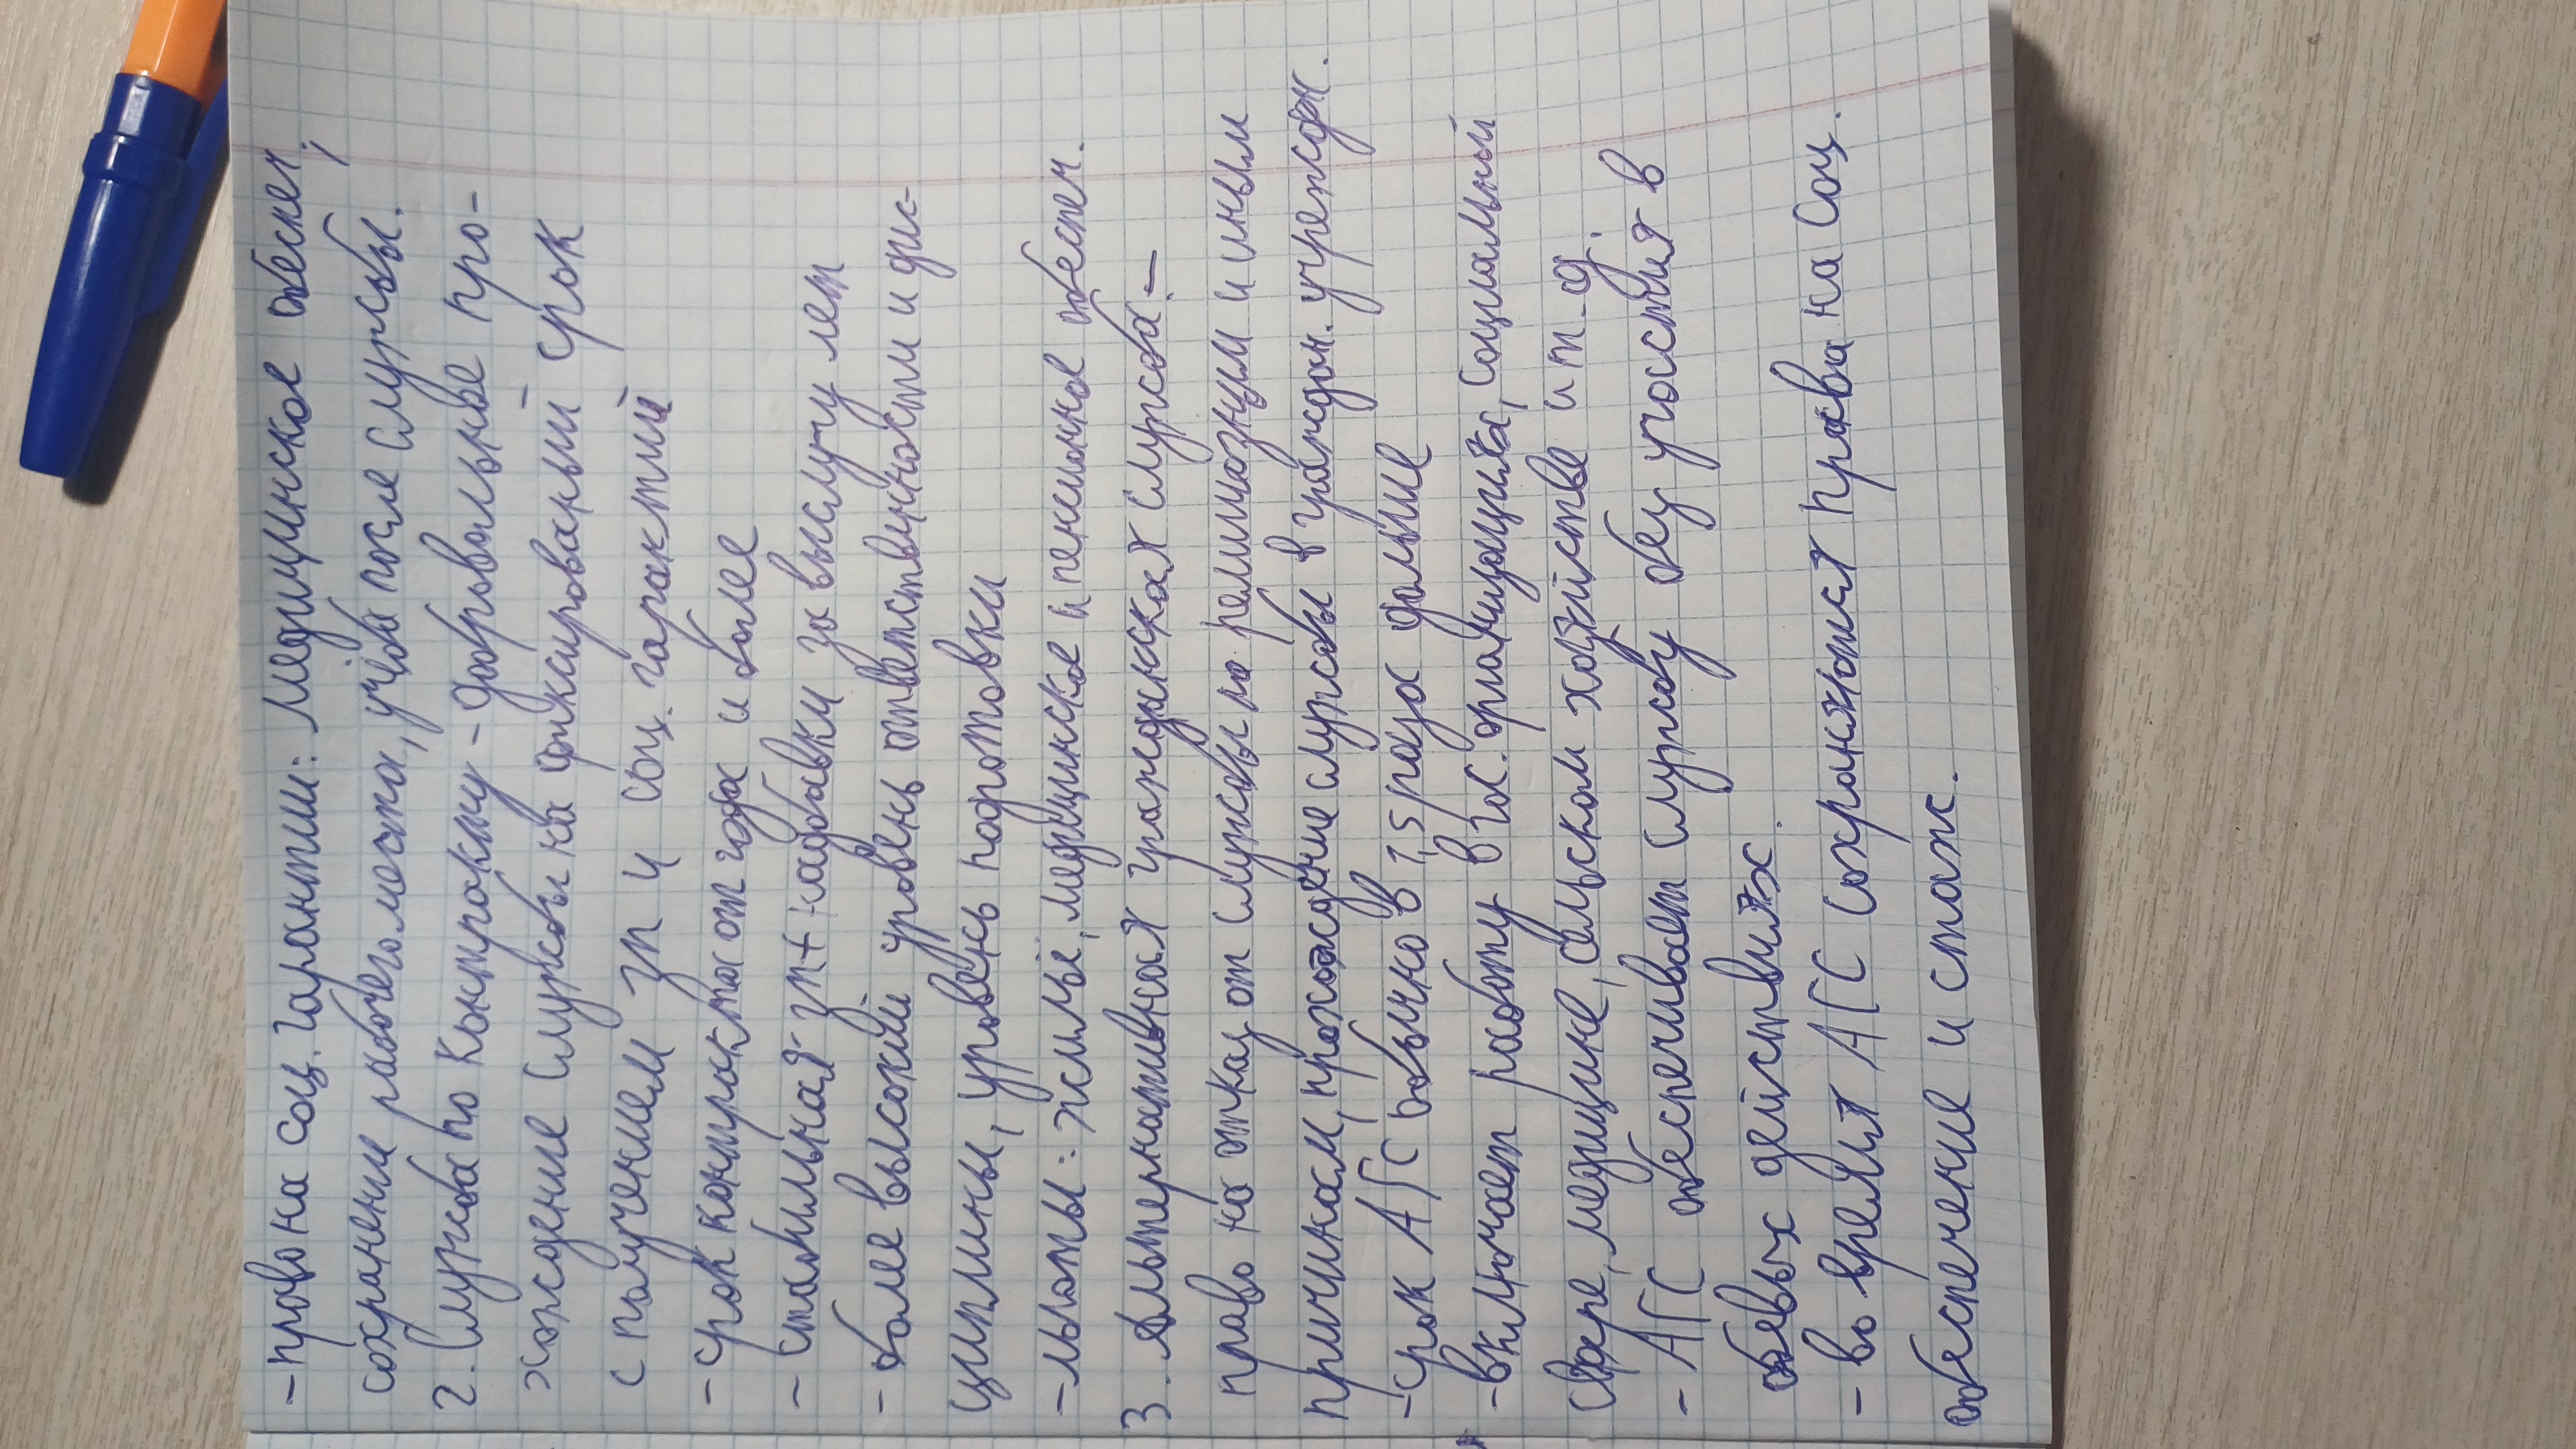 - право на соц. гарантии: медицинское обеспеч,
сохранении рабочего места, учёба после службы.
2. Служба по контракту - добровольное про-
хождение службы на фиксированый срок
с получением зп и соц. гарантий
- срок контракта от года и более
- стабильная зп + надбавки за выслугу лет
- более высокий уровень ответственности и дис-
циплины, уровень подготовки
- льготы: жильё, медицинское и пенсионное обеспеч.
3. Альтернативная гражданская служба -
право на отказ от службы по религиозным и иным
причинам, прохождение службы в граждан. учрежден.
- срок АГС обычно в 1,5 раза дольше
- включает работу в гос. организациях, социальный
сфере, медицине, сельском хозяйстве и т-д.
- АГС обеспечивает службу без участия в
боевых действиях.
- во время АГС сохраняются права на соц.
обеспечение и стаж.